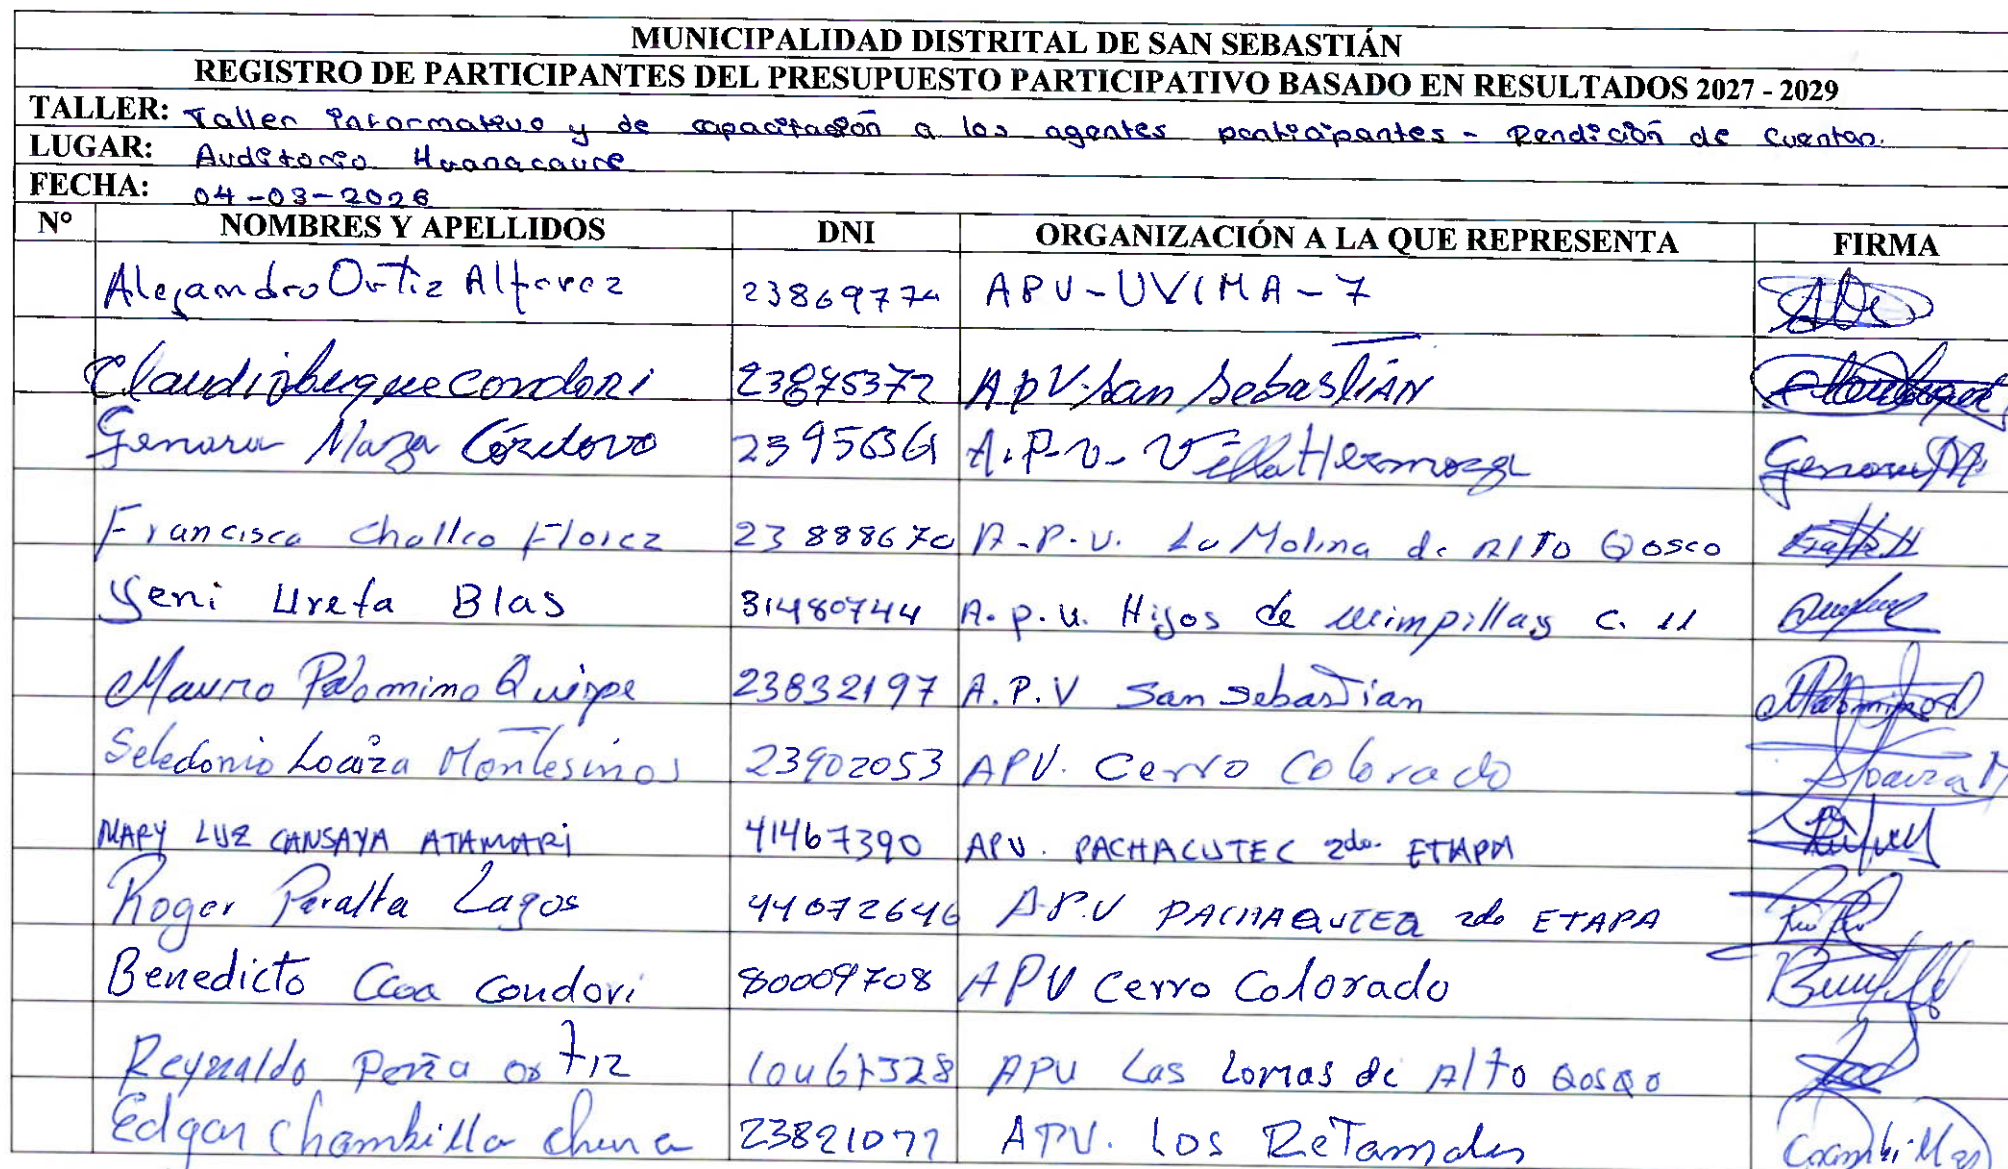 MUNICIPALIDAD DISTRITAL DE SAN SEBASTIÁN
REGISTRO DE PARTICIPANTES DEL PRESUPUESTO PARTICIPATIVO BASADO EN RESULTADOS 2027 - 2029
TALLER: Taller informativo y de capacitación a los agentes participantes - Rendición de cuentas.
LUGAR: Auditorio Huanacaure
FECHA: 04-03-2026
N° NOMBRES Y APELLIDOS DNI ORGANIZACIÓN A LA QUE REPRESENTA FIRMA
Alejandro Ortiz Alferez APV-UVIMA-7
Claudio Luque Condori 23875372 APV. San Sebastián
Genara Maza Córdova A.P.V. Villa Hermoza
Francisco Challco Florez 23888670 A.P.V. La Molina de Alto Qosco
Yeni Ureta Blas 31480744 A.P.V. Hijos de wimpillay C. 11
Mauro Palomino Quispe 23832197 A.P.V San Sebastian
Seledonio Loaiza Montesinos 23902053 APV. Cerro Colorado
MARY LUZ CANSAYA ATAMARI 41467390 APV. PACHACUTEC 2do. ETAPA
Roger Peralta Lagos 44072646 A.P.V PACHAQUTEQ 2do ETAPA
Benedicto Ccoa Condori 80009708 APV Cerro Colorado
Reynaldo Peña ortiz APV Las Lomas de Alto Qosqo
Edgar Chambilla 23821077 APV. Los ReTamales